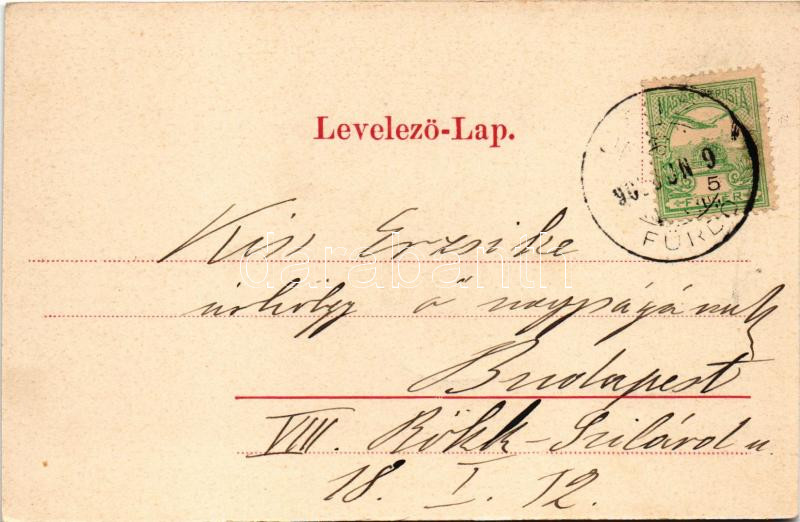 Levelező-Lap.
MAGYAR POSTA
5
FILLÉR
JUN 9
FÜRD
Kiss Erzsike
úrhölgy ő nagyságának
Budapest
VIII. Rökk-Szilárd u.
18. I. 12.
darabanth